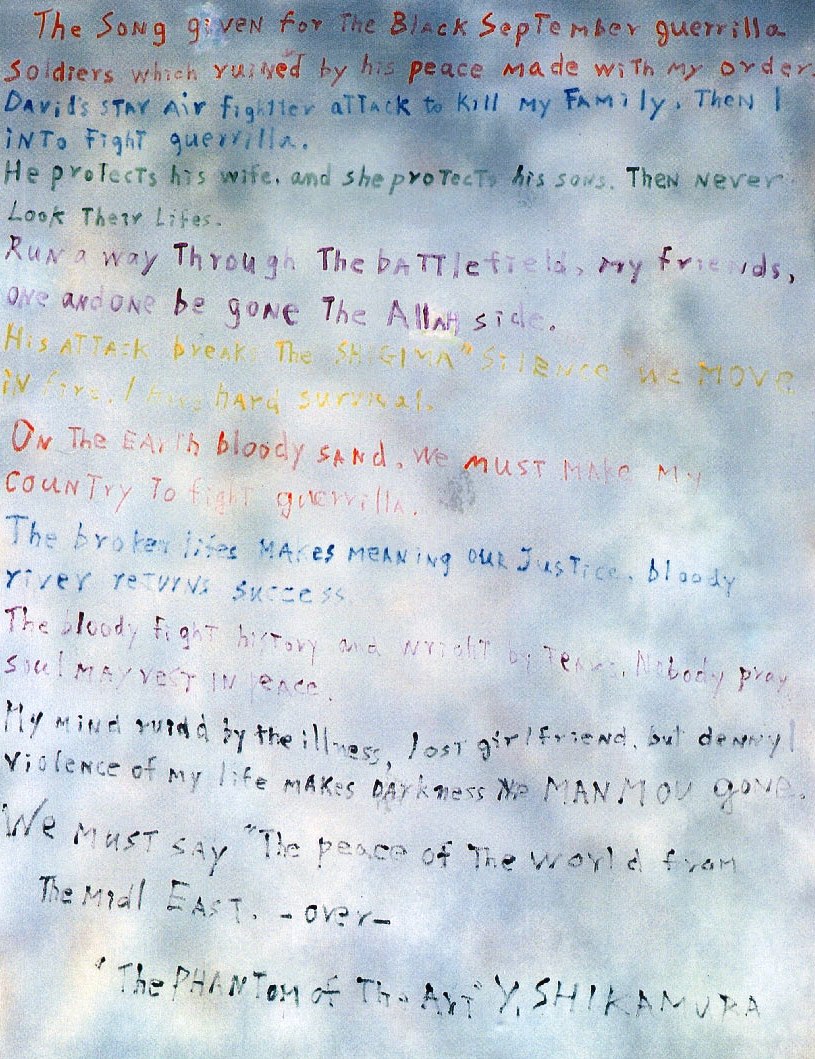 The SONG giVEN for The BLACK SepTEmber guerrilla
Soldiers which ruiNed by his peace made with my order.
DAViD's STAR AiR fightter aTTACK to Kill MY FAMily. TheN I
iNTo FighT guerrilla.
He proTecTs his wife. and she proTecTs his sons. TheN Never
Look Their Lifes.
RuN a way Through The bATTlefield, my frieNds,
ONe andONe be goNe The AllAH side.
His ATTAcK breaks The SHIGIMA" SilENce we MOVe
iN fire. I hard survival.
ON The EArTh bloody SANd. We MUST MAKe MY
COUNTry To fighT guerrilla.
The broken lifes MAKes MEANiNg OUR JusTice. bloody
river reTurNs success.
The bloody fighT hisTory and by TeArs. Nobody pray
soul MAY resT IN peace.
My MiNd by the illness, losT girlfrieNd. but deNNy I
violence of my life MAKes DArkness MANMOU goNe.
We MusT SAy "The peace of The world from
The Midl EAST. - over -
"The PHANTOM of The ArT" Y, SHIKAMURA